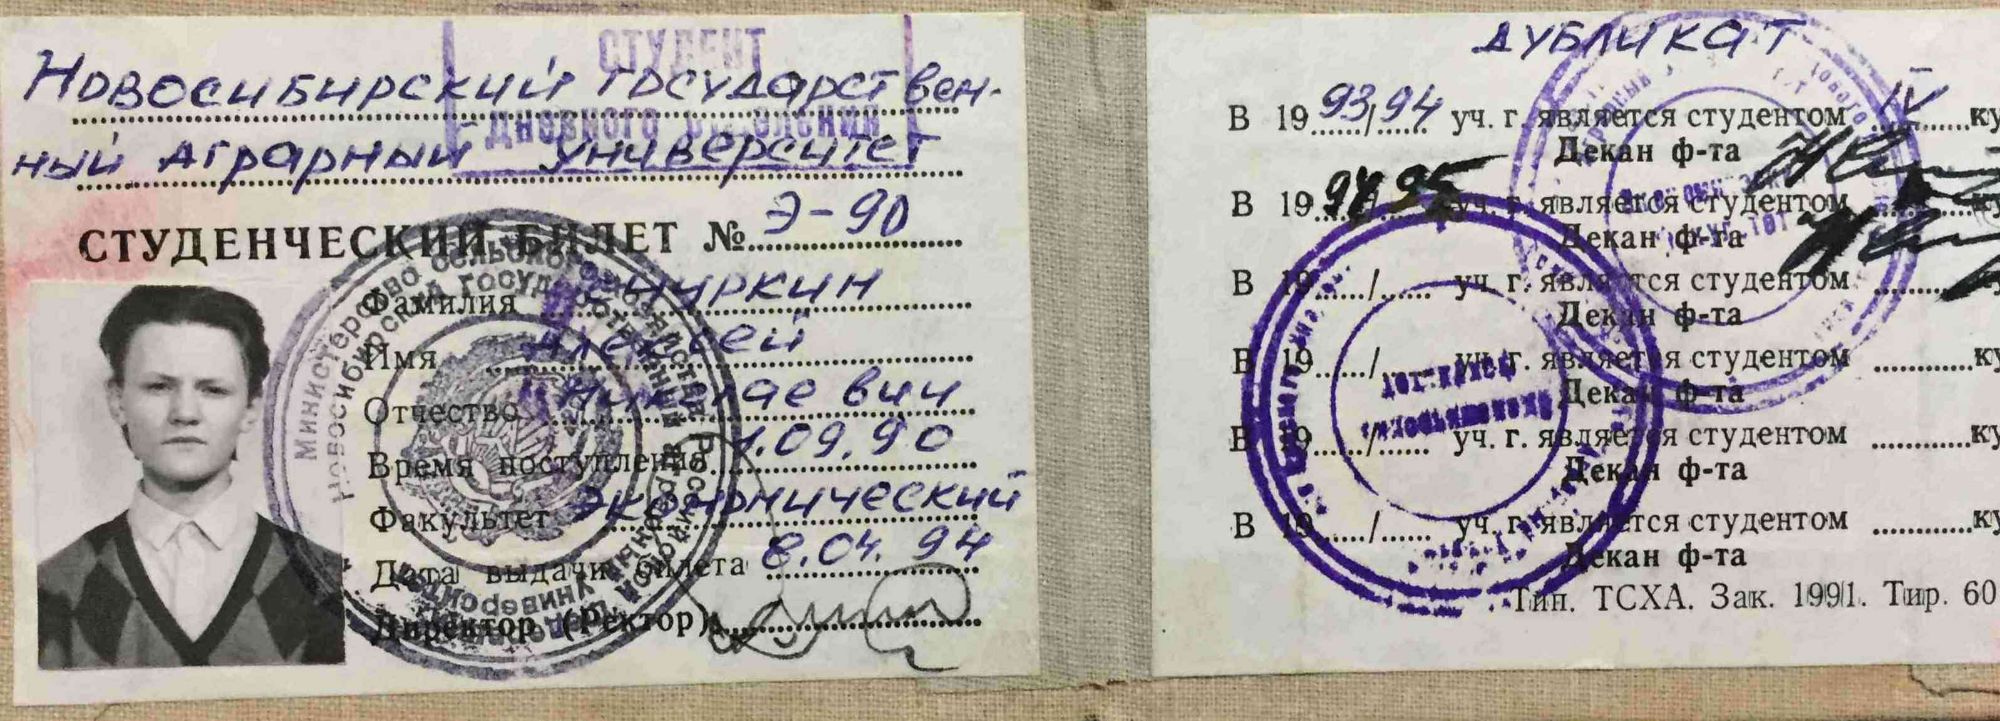 СТУДЕНТ
ДНЕВНОГО ОТДЕЛЕНИЯ
Новосибирский государствен-
ный аграрный университет
СТУДЕНЧЕСКИЙ БИЛЕТ № Э-90
Фамилия
Имя Алексей
Отчество Николаевич
Время поступления 1.09.90
Факультет Экономический
Дата выдачи билета 8.04.94
Директор (Ректор)
ДУБЛИКАТ
В 1993/94 уч. г. является студентом IV ку
Декан ф-та
В 1994/95 уч. г. является студентом ку
Декан ф-та
В 19....../...... уч. г. является студентом
Декан ф-та
В 19....../...... уч. г. является студентом ку
Декан ф-та
В 19....../...... уч. г. является студентом ку
Декан ф-та
В 19....../...... уч. г. является студентом ку
Декан ф-та
Тип. ТСХА. Зак. 1991. Тир. 60